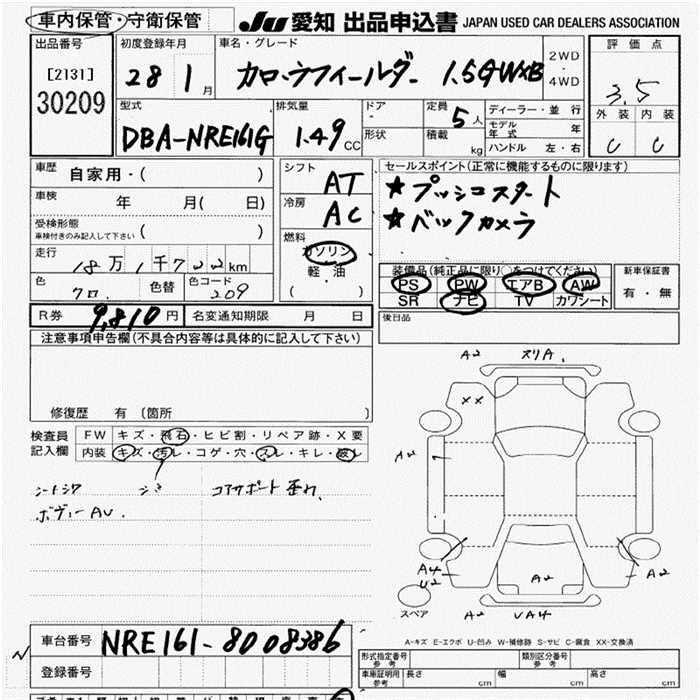 車内保管・守衛保管 JU 愛知 出品申込書 JAPAN USED CAR DEALERS ASSOCIATION
出品番号 初度登録年月 車名・グレード 2WD・4WD 評価点
[2131] 28 1月 カローラフィールダー 1.5G W×B 3.5
30209 型式 排気量 ドア 定員 5人 ディーラー・並行 外装 内装
DBA-NRE161G 1.49CC 形状 積載 kg モデル年式 年 C C
ハンドル 左・右
車歴 自家用・( ) シフト AT セールスポイント(正常に機能するものに限ります)
車検 年 月( 日) 冷房 AC ★プッシュスタート
受検形態 ★バックカメラ
車検付きのみ記入して下さい ( ) 燃料 ガソリン
走行 18万1千722km 軽・油 装備品(純正品に限り○をつけてください) 新車保証書
色 クロ 色替 色コード 209 ( ・ ) PS PW エアB AW 有・無
SR ナビ TV カワシート
R券 9,810円 名変通知期限 月 日 後日品
注意事項申告欄(不具合内容等は具体的に記入して下さい)
A2 スリA
××
修復歴 有 (箇所 )
検査員 FW キズ・飛石・ヒビ割・リペア跡・X要
記入欄 内装 キズ・汚レ・コゲ・穴・スレ・キレ・破レ
A2
シートシワ コアサポート歪み
ボディーAU.
A4
U2 A2 A2
スペア A2 UA4
車台番号 NRE161-8008386
A-キズ E-エクボ U-凹み W-補修跡 S-サビ C-腐食 XX-交換済
登録番号 形式指定番号 参考 類別区分番号 参考
車庫証明用 参考 長さ cm 幅 cm 高さ cm